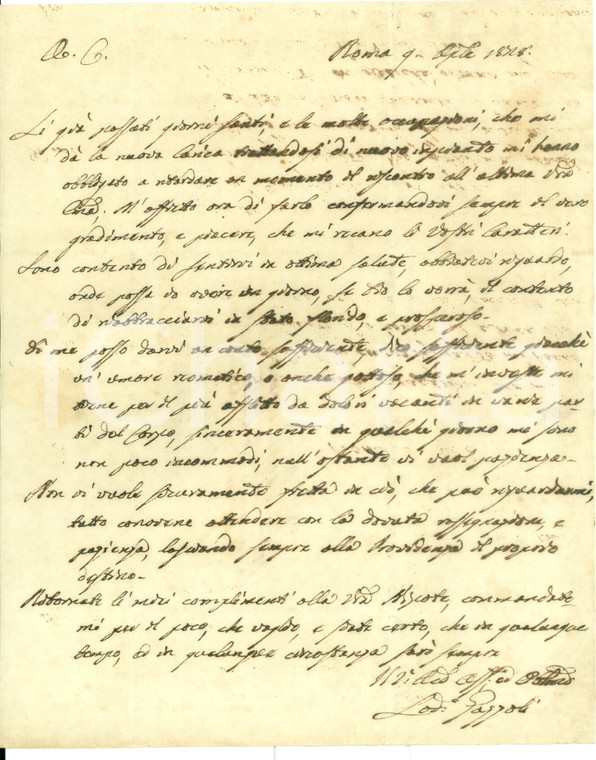 Roma 9 Aple 1828
Li già passati giorni santi, e le molte occupazioni, che mi
dà la nuova Carica trattandosi di nuovo impianto mi hanno
obbligato a ritardare un momento il riscontro all' ultima Vra
M'affretto ora di farlo confermandovi sempre il vero
gradimento, e piacere, che mi recano li Vostri Caratteri.
Sono contento di sentirvi in ottima salute, abbiatevi riguardo,
onde possa io avere un giorno, se Dio lo vorrà, il contento
di riabbracciarvi in stato florido, e prosperoso.
Di me posso darvi un conto sufficiente, dico sufficiente giacchè
un' umore reomatico, o anche gottoso, che m'investe mi
tiene per il più afflitto da dolori vacanti in varie par-
ti del Corpo, sinceramente in qualche giorno mi sono
non poco incommodi, null'ostante vi vuol pazienza.
Non vi vuole sicuramente fretta in ciò, che può riguardarmi,
tutto conviene attendere con la dovuta rassegnazione, e
pazienza, lasciando sempre alla Providenza il proprio
destino.
Ritornate li miei complimenti alla Vra Nipote, commandate-
mi per il poco, che vaglio, e siate certo, che in qualunque
tempo, ed in qualunque circostanza sarò sempre
Il Vr. Aff. ed
Lod. Gazzoli